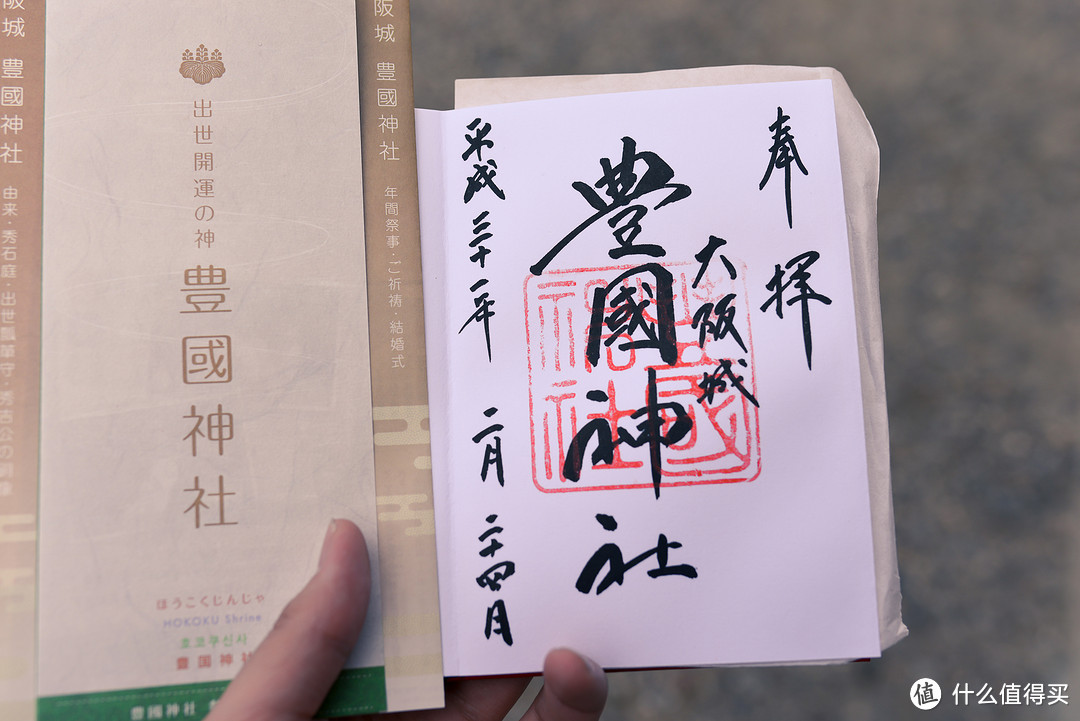 阪城 豊國神社 由来・秀石庭・出世瓢箪守・秀吉公の
出世開運の神
豊國神社
ほうこくじんじゃ
HOKOKU Shrine
호코쿠신사
豊国神社
豊國神社
阪城 豊國神社 年間祭事・ご祈祷・結婚式
奉拝
大阪城
豊國神社
平成三十一年 二月 二十四日
值 什么值得买